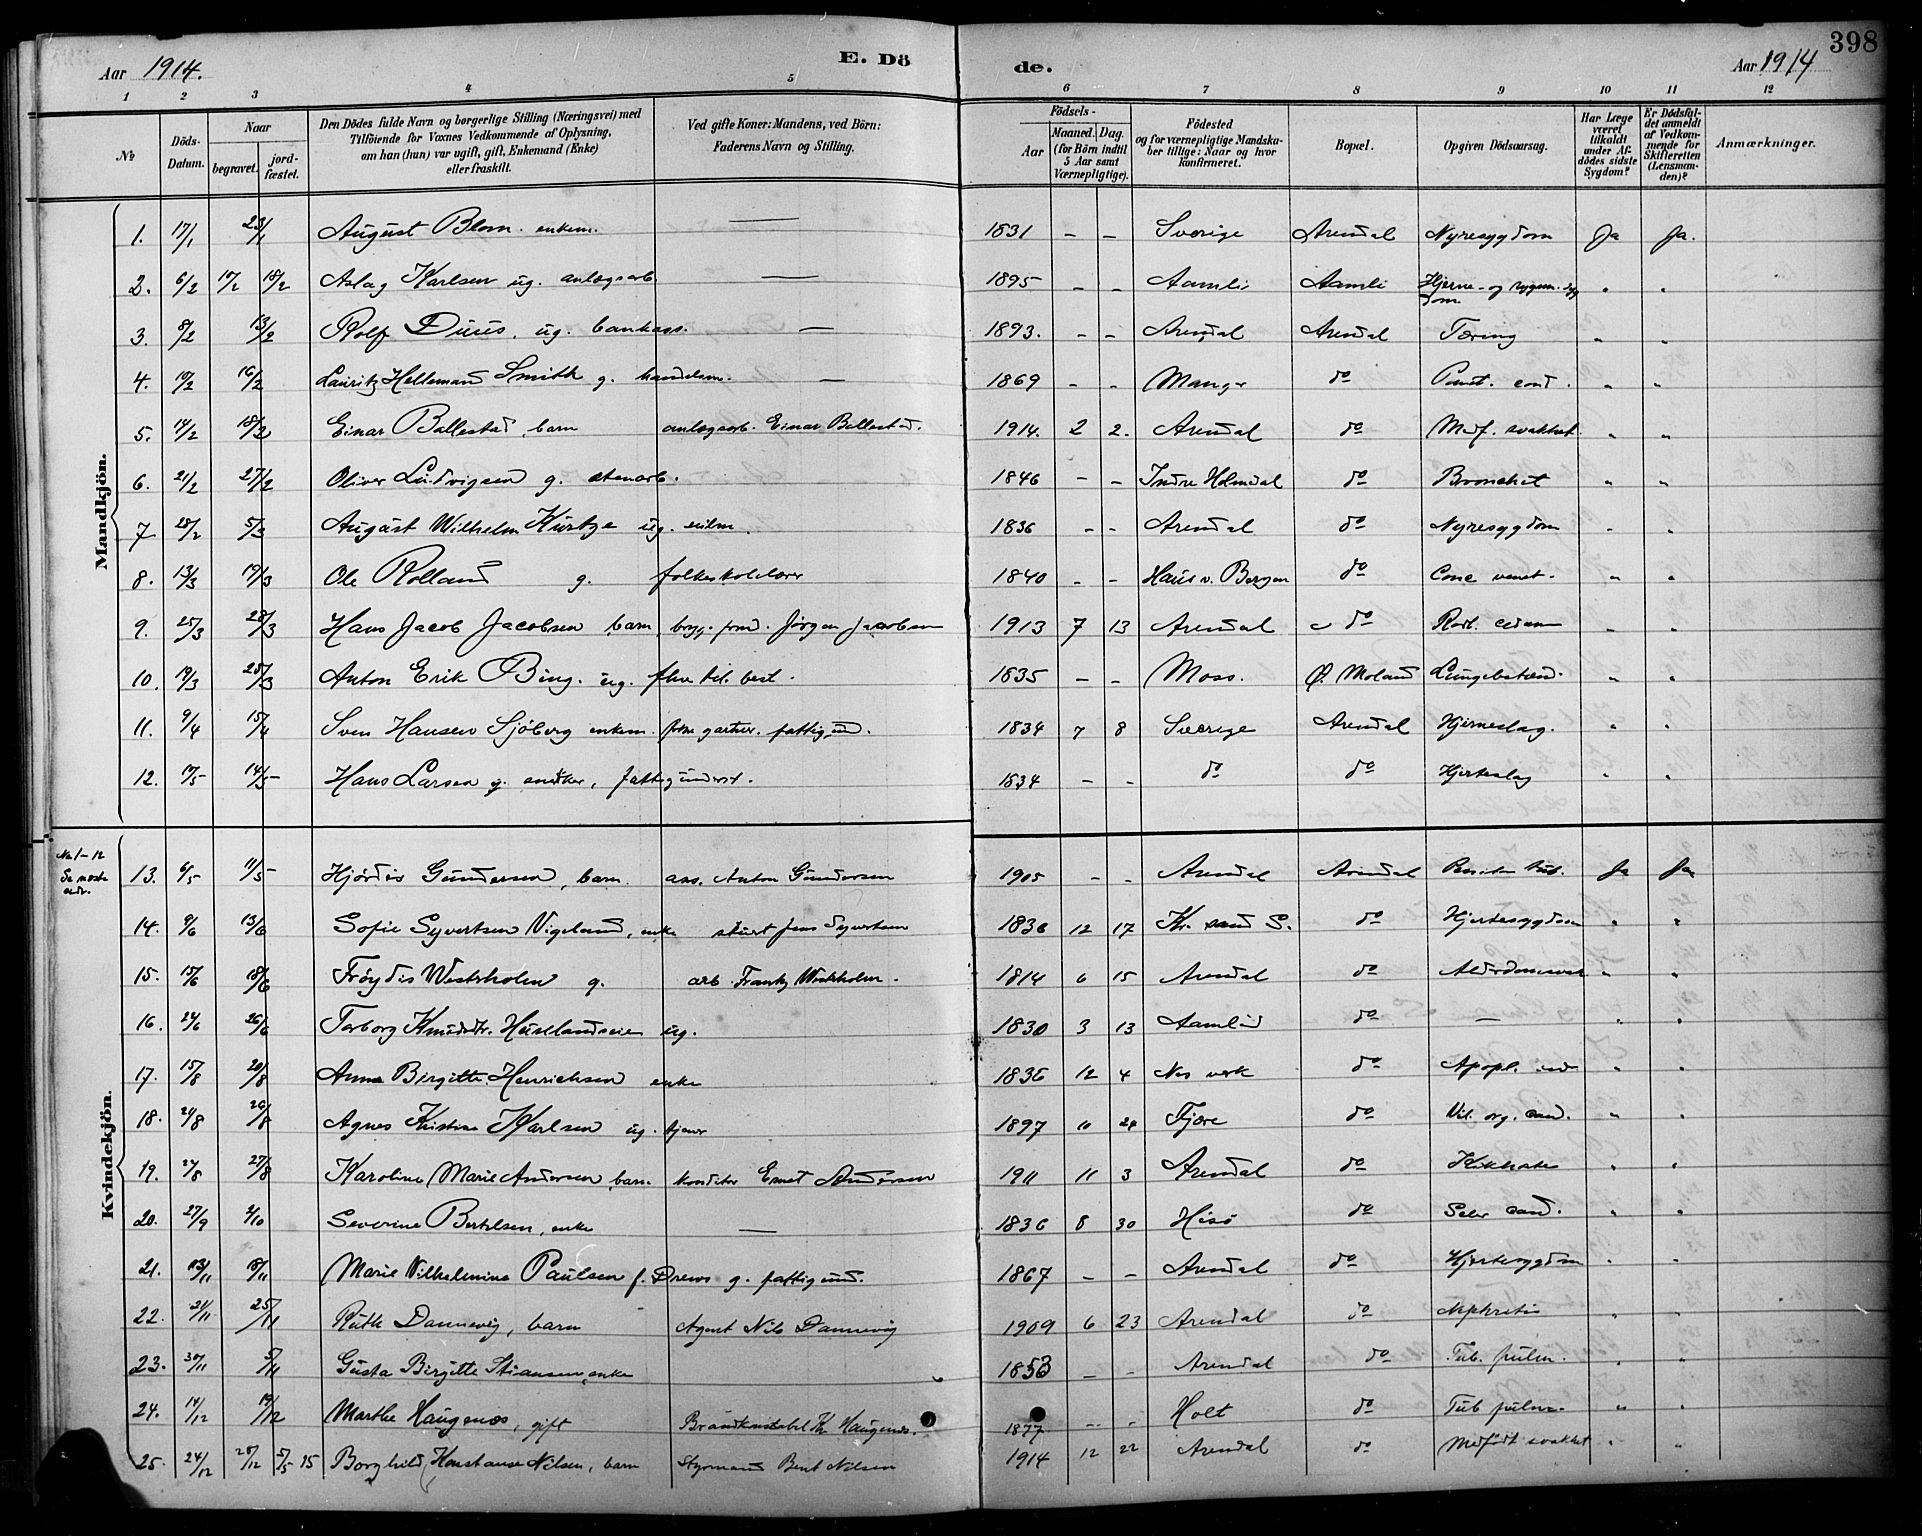 398
Aar 1914. E. Dö de. Aar 1914
1 2 3 4 5 6 7 8 9 10 11 12
No Döds-Datum. Naar begravet. jord-fæstet. Den Dödes fulde Navn og borgerlige Stilling (Næringsvei) med Tilföiende for Voxnes Vedkommende af Oplysning, om han (hun) var ugift, gift, Enkemand (Enke) eller fraskilt. Ved gifte Koner: Mandens, ved Börn: Faderens Navn og Stilling. Födsels- Aar Maaned. Dag. (for Börn indtil 5 Aar samt Værnepligtige). Födested og for værnepligtige Mandska-ber tillige: Naar og hvor konfirmeret. Bopæl. Opgiven Dödsaarsag. Har Læge været tilkaldt under Af-dödes sidste Sygdom? Er Dödsfal-det anmeldt af Vedkom-mende for Skifteretten (Lensman-den)? Anmærkninger.
Mandkjön.
1. 17/1 23/1 August Blom. enkem. — 1831 - - Sverige Arendal Nyresygdom Ja Ja.
2. 6/2 17/2 18/2 Aslag Karlsen ug. anlægsarb — 1895 - - Aamli Aamli Hjerne- og rygm. syg dom " "
3. 8/2 13/2 Rolf Duus, ug. bankass. — 1893. - - Arendal Arendal Tæring " "
4. 10/2 16/2 Lauritz Hellemand Smith g. handelsm. — 1869 - - Manger do " "
5. 14/2 18/2 Einar Ballestad, barn anlægsarb. Einar Ballestad. 1914. 2 2. Arendal do Medf. svakhet " "
6. 21/2 27/2 Oliver Ludvigsen g. stenarb. 1846 - - Indre Holmdal do Bronchit " "
7 28/2 5/3 August Wilhelm Kürtze ug. 1836 - - Arendal do Nyresygdom " "
8. 13/3 19/3 Ole Rolland g. folkeskolelærer 1840 - - Haus v. Bergen do " "
9. 25/3 28/3 Hans Jacob Jacobsen barn, brygg. Jörgen Jacobsen 1913 7 13 Arendal do " "
10. 19/3 25/3 Anton Erik Bing. ug. fhv. tel. best. 1835 - - Moss. Ø. Moland Lungebetænd. " "
11. 9/4 15/4 Sven Hansen Sjöberg enkem. gartner. fattigund. 1834 7 8 Sverige Arendal Hjerneslag. " "
12. 14/5 Hans Larsen g. snedker, fattigunderst. 1834 - - do do Hjerteslag " "
No 1-12 Se næste
Kvindekjön.
13. 6/5 11/5 Hjördis Gundersen, barn. Anton Gundersen 1905 - - Arendal Arendal Ja Ja
14. 9/6 13/6 Sofie Syvertsen Vigeland, enke Jens Syvertsen 1836 12 17 Kr.sand S. do Hjertesygdom " "
15. 15/6 18/6 Fröydis Westerholm g. arb. Frantz Westerholm. 1814 6 15 Arendal do " "
16. 24/6 26/6 Torborg Knudsdtr. ug. 1830 3 13 Aamli do — " "
17. 15/8 20/8 Anna Birgitte Henrichsen enke 1836 12 4 Nes verk do Apopl. " "
18. 21/8 26/8 Agnes Kristine Karlsen ug. tjener 1897 10 24 Fjære do Vit. org. cord. " "
19. 27/8 Karoline Marie Andersen, barn. konditor Ernst Andersen 1911 11 3 Arendal do Kikhoste " "
20. 27/9 2/10 Severine Bertelsen, enke — 1836 8 30 Hisö do " "
21. 13/11 18/11 Marie Vilhelmine Paulsen f. Drews g. fattigund. 1867 - - Arendal do Hjertesygdom " "
22. 21/11 25/11 Ruth Dannevig, barn Agent Nils Dannevig 1909 6 23 Arendal do Nephritis " "
23. 30/11 5/11 Gusta Birgitte Stiansen, enke 1853 - - Arendal do Tub. pulm. " "
24. 14/12 19/12 Marthe Haugenes, gift Brandkonstabel K. Haugenes. 1877 - - Holt do Tub. pulm. " "
25. 24/12 28/12 5/5 15 Borghild Konstanse Nilsen, barn Styrmand Bent Nilsen 1914 12 22 Arendal do Medfödt svakhet " "